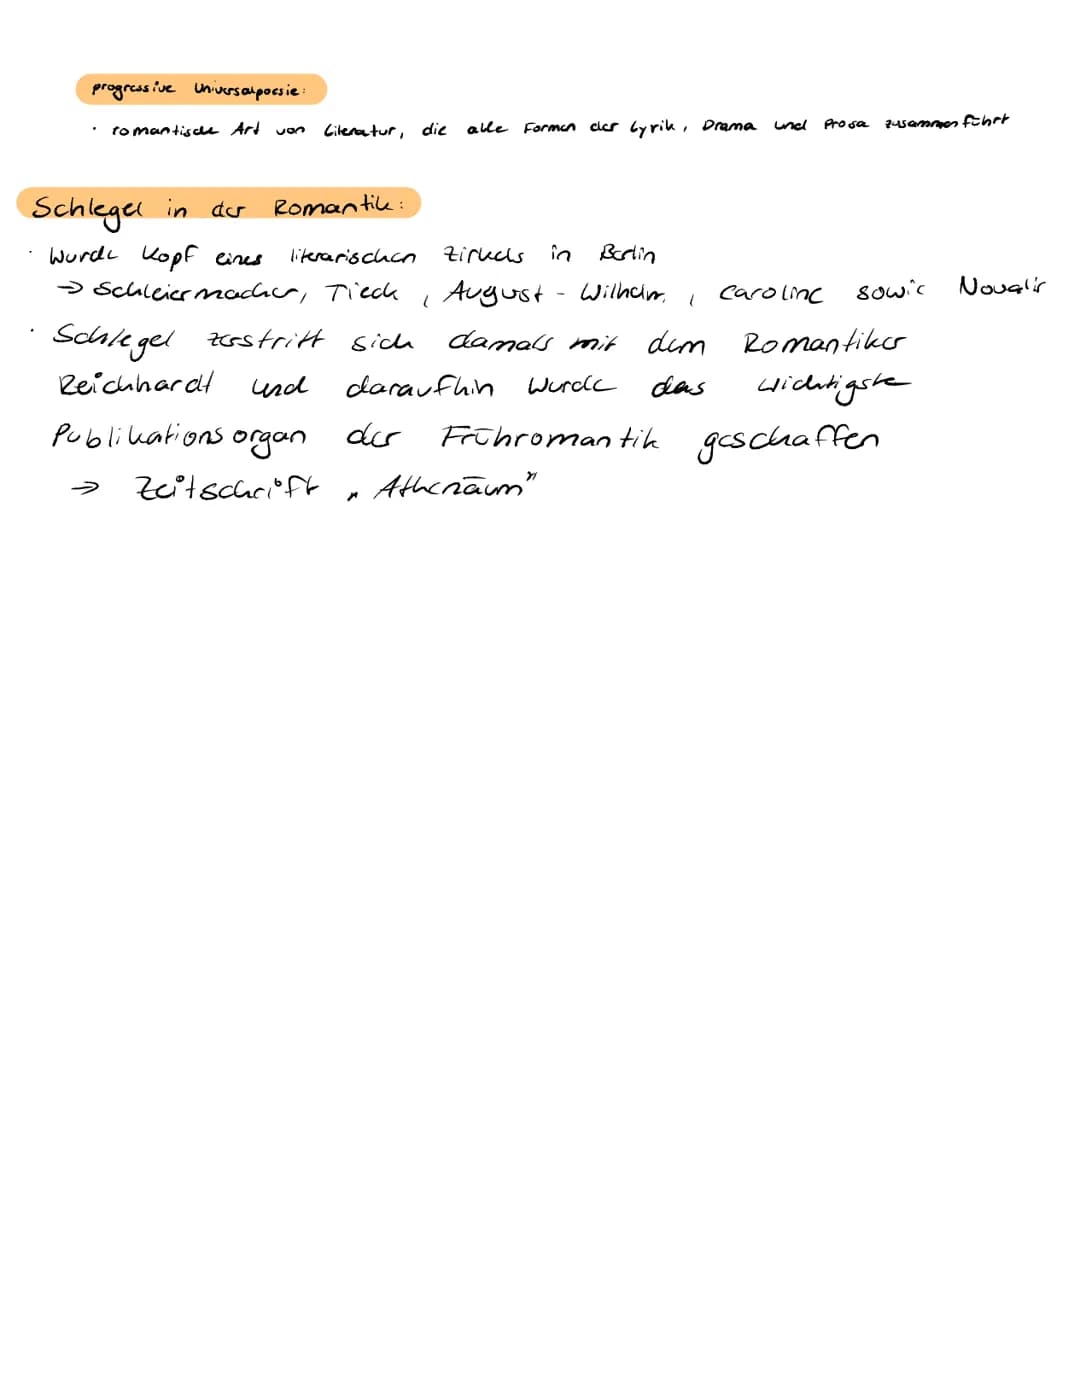 progressive Universalpoesie:
· romantische Art von Literatur, die alle Formen der Lyrik, Drama und Prosa zusammenführt
Schlegel in der Romantik:
· Wurde Kopf eines literarischen Zirkels in Berlin
→ Schleiermacher, Tieck, August-Wilhelm, Caroline sowie Novalis
· Schlegel zerstritt sich damals mit dem Romantiker
Reichhardt und daraufhin wurde das wichtigste
Publikationsorgan der Frühromantik geschaffen
→ Zeitschrift „Athenäum"